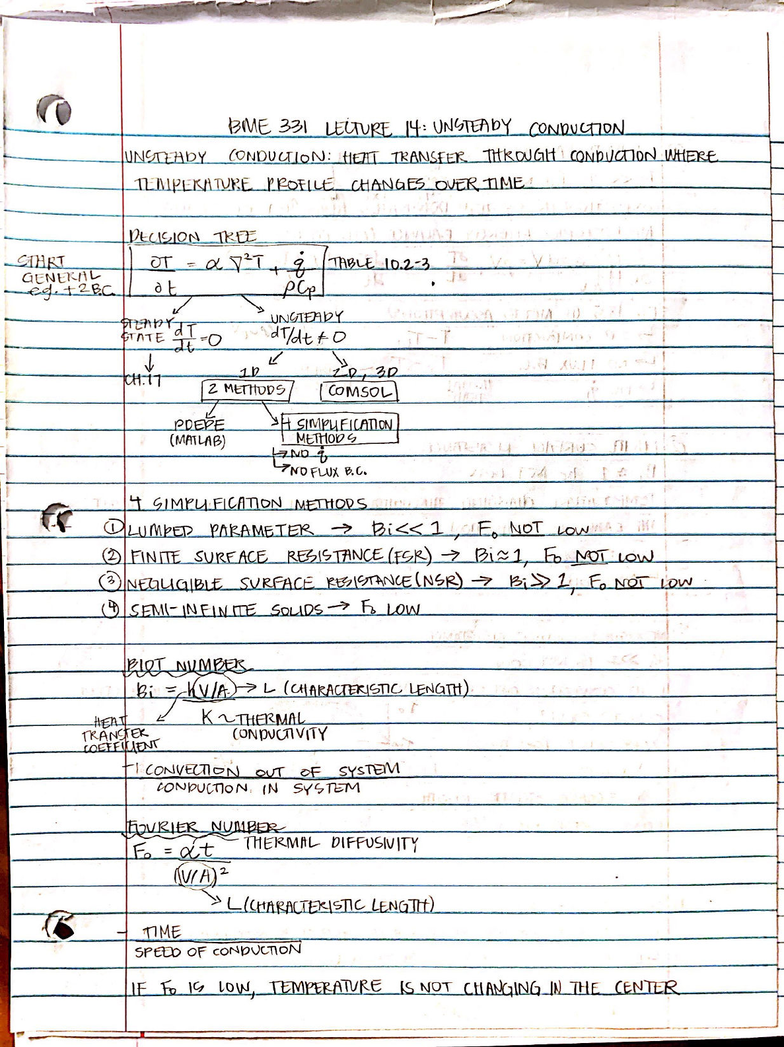 BME 331 LECTURE 14: UNSTEADY CONDUCTION
UNSTEADY CONDUCTION: HEAT TRANSFER THROUGH CONDUCTION WHERE
TEMPERATURE PROFILE CHANGES OVER TIME
DECISION TREE
START GENERAL eq. + 2 B.C.
∂T/∂t = α ∇²T + q̇/ρCp TABLE 10.2-3
STEADY STATE dT/dt = 0
UNSTEADY dT/dt ≠ 0
CH.17
1D
2D, 3D
2 METHODS
COMSOL
PDEPE
(MATLAB)
4 SIMPLIFICATION
METHODS
→ NO q̇
→ NO FLUX B.C.
4 SIMPLIFICATION METHODS
① LUMPED PARAMETER → Bi << 1, Fo NOT LOW
② FINITE SURFACE RESISTANCE (FSR) → Bi ≈ 1, Fo NOT LOW
③ NEGLIGIBLE SURFACE RESISTANCE (NSR) → Bi >> 1, Fo NOT LOW
④ SEMI-INFINITE SOLIDS → Fo LOW
BIOT NUMBER
Bi = h(V/A) → L (CHARACTERISTIC LENGTH)
K ~ THERMAL
CONDUCTIVITY
HEAT
TRANSFER
COEFFICIENT
CONVECTION OUT OF SYSTEM
CONDUCTION IN SYSTEM
FOURIER NUMBER
Fo = αt THERMAL DIFFUSIVITY
(V/A)²
→ L (CHARACTERISTIC LENGTH)
- TIME
SPEED OF CONDUCTION
IF Fo IS LOW, TEMPERATURE IS NOT CHANGING IN THE CENTER